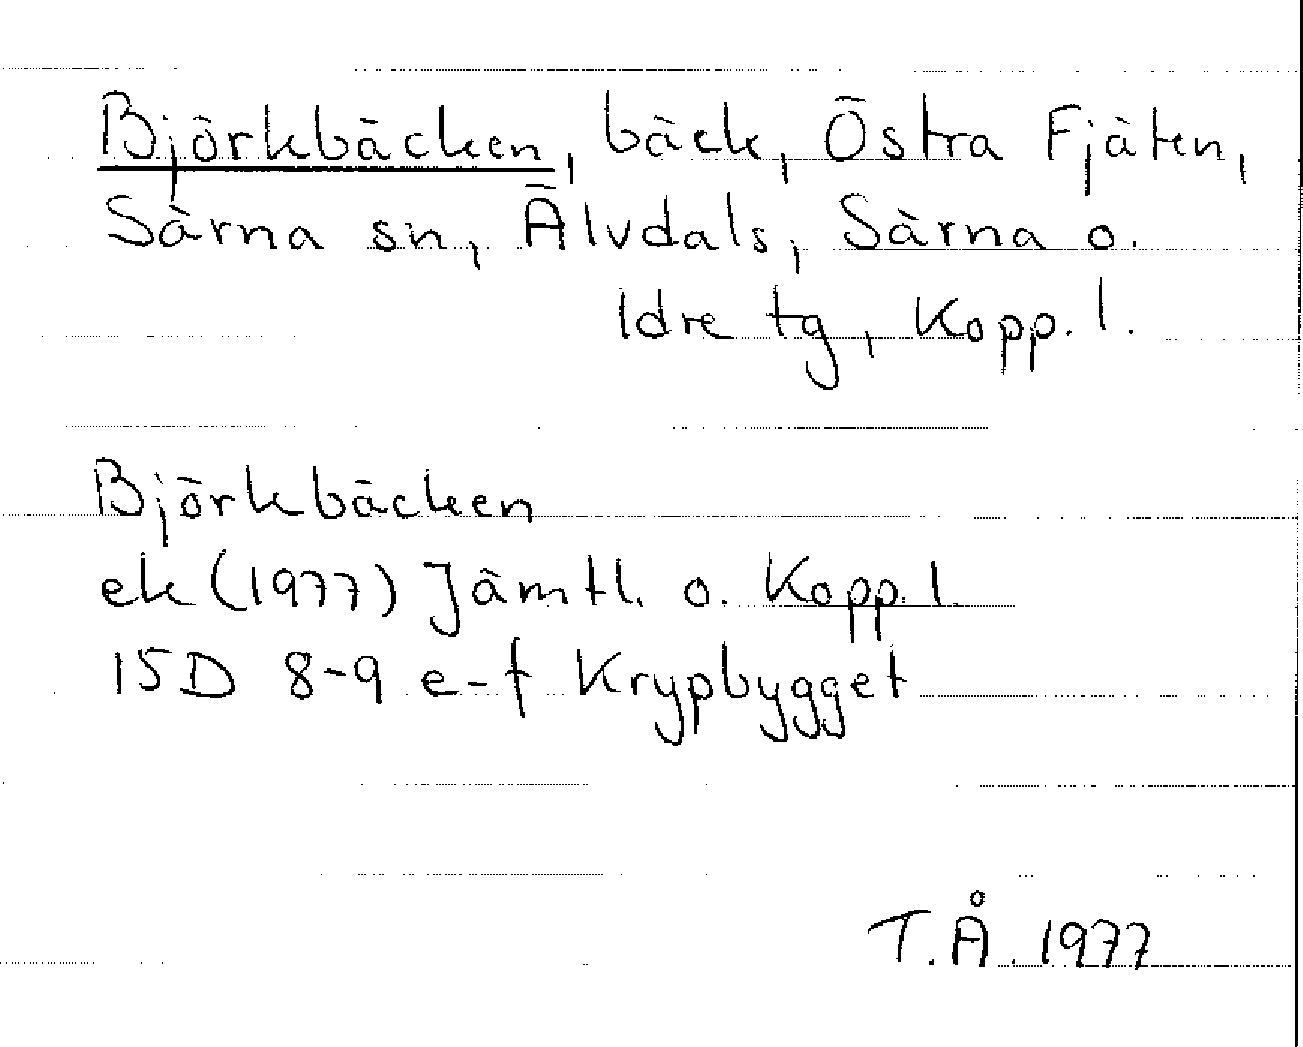 Björkbäcken, bäck, Östra Fjäten,
Särna sn, Älvdals, Särna o.
Idre tg, Kopp. l.
Björkbäcken
ek (1977) Jämtl. o. Kopp. l.
15D 8-9 e-f Krypbygget
T.Å. 1977